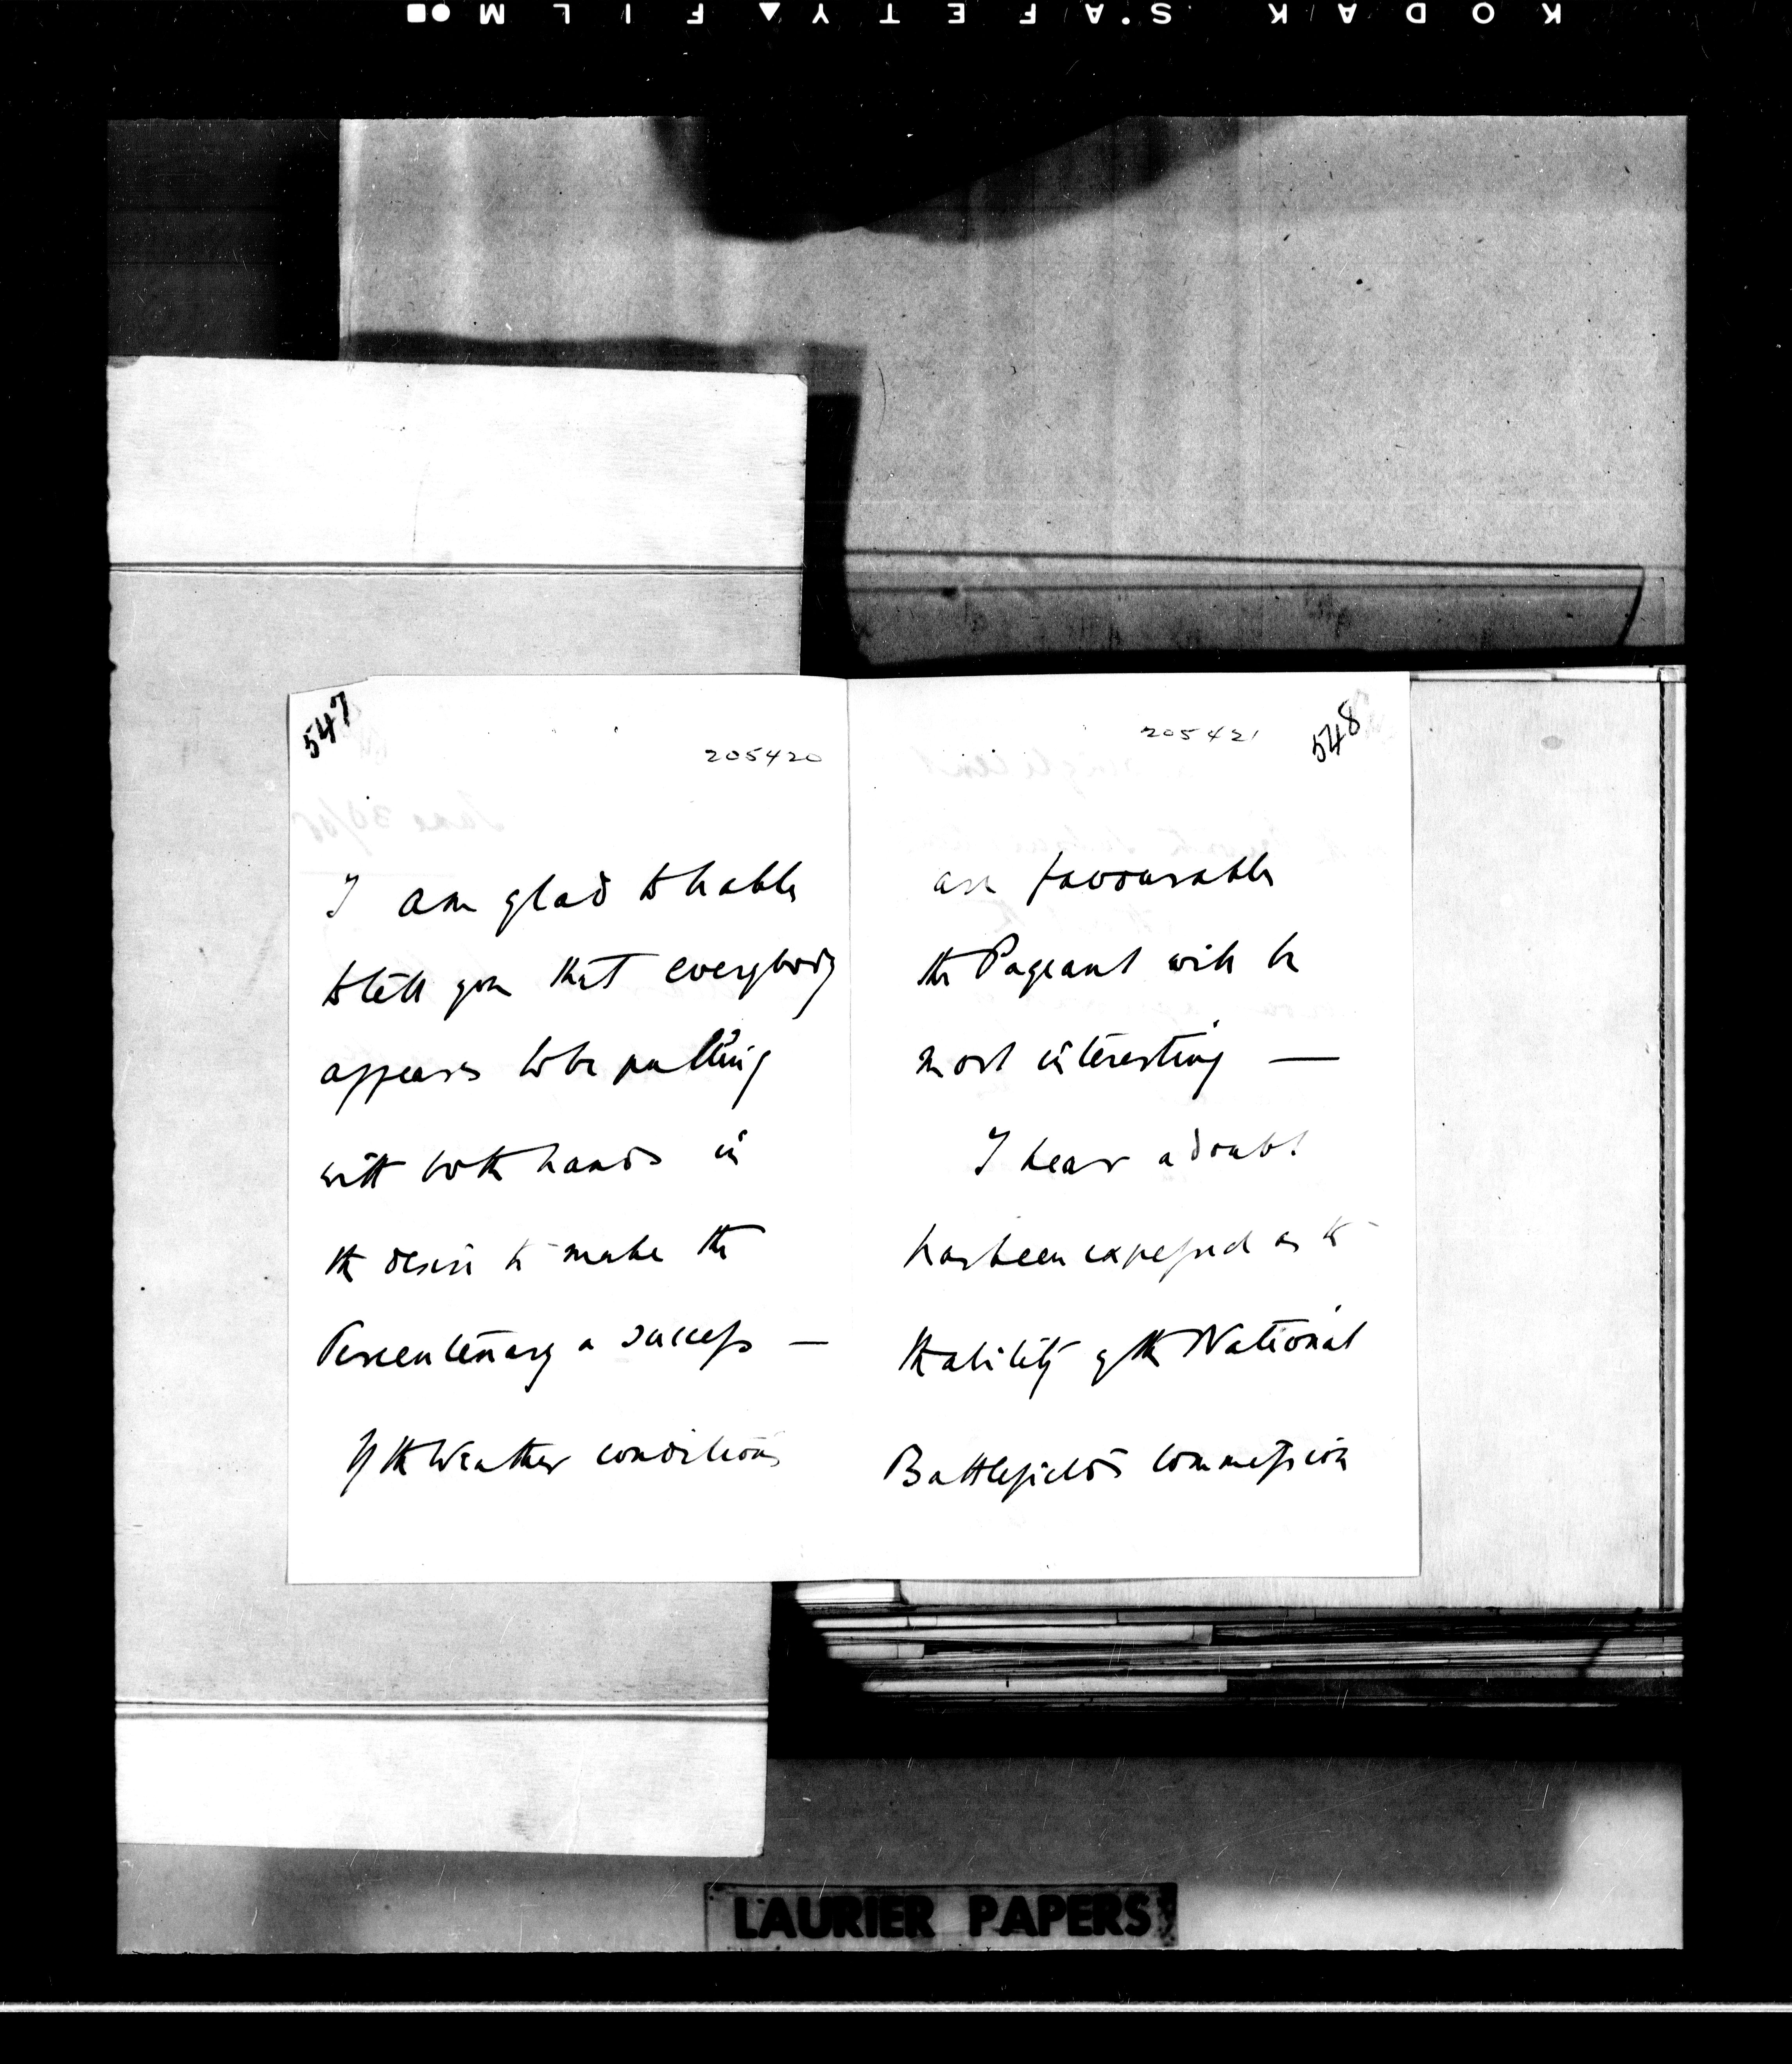 KODAK SAFETY FILM
547
205420
I am glad to be able
to tell you that everybody
appears to be pulling
with both hands in
the desire to make the
Tercentenary a success —
If the Weather conditions
205421
548
are favourable
the Pageant will be
most interesting —
I hear a doubt
has been expressed as to
the ability of the National
Battlefields Commission
LAURIER PAPERS